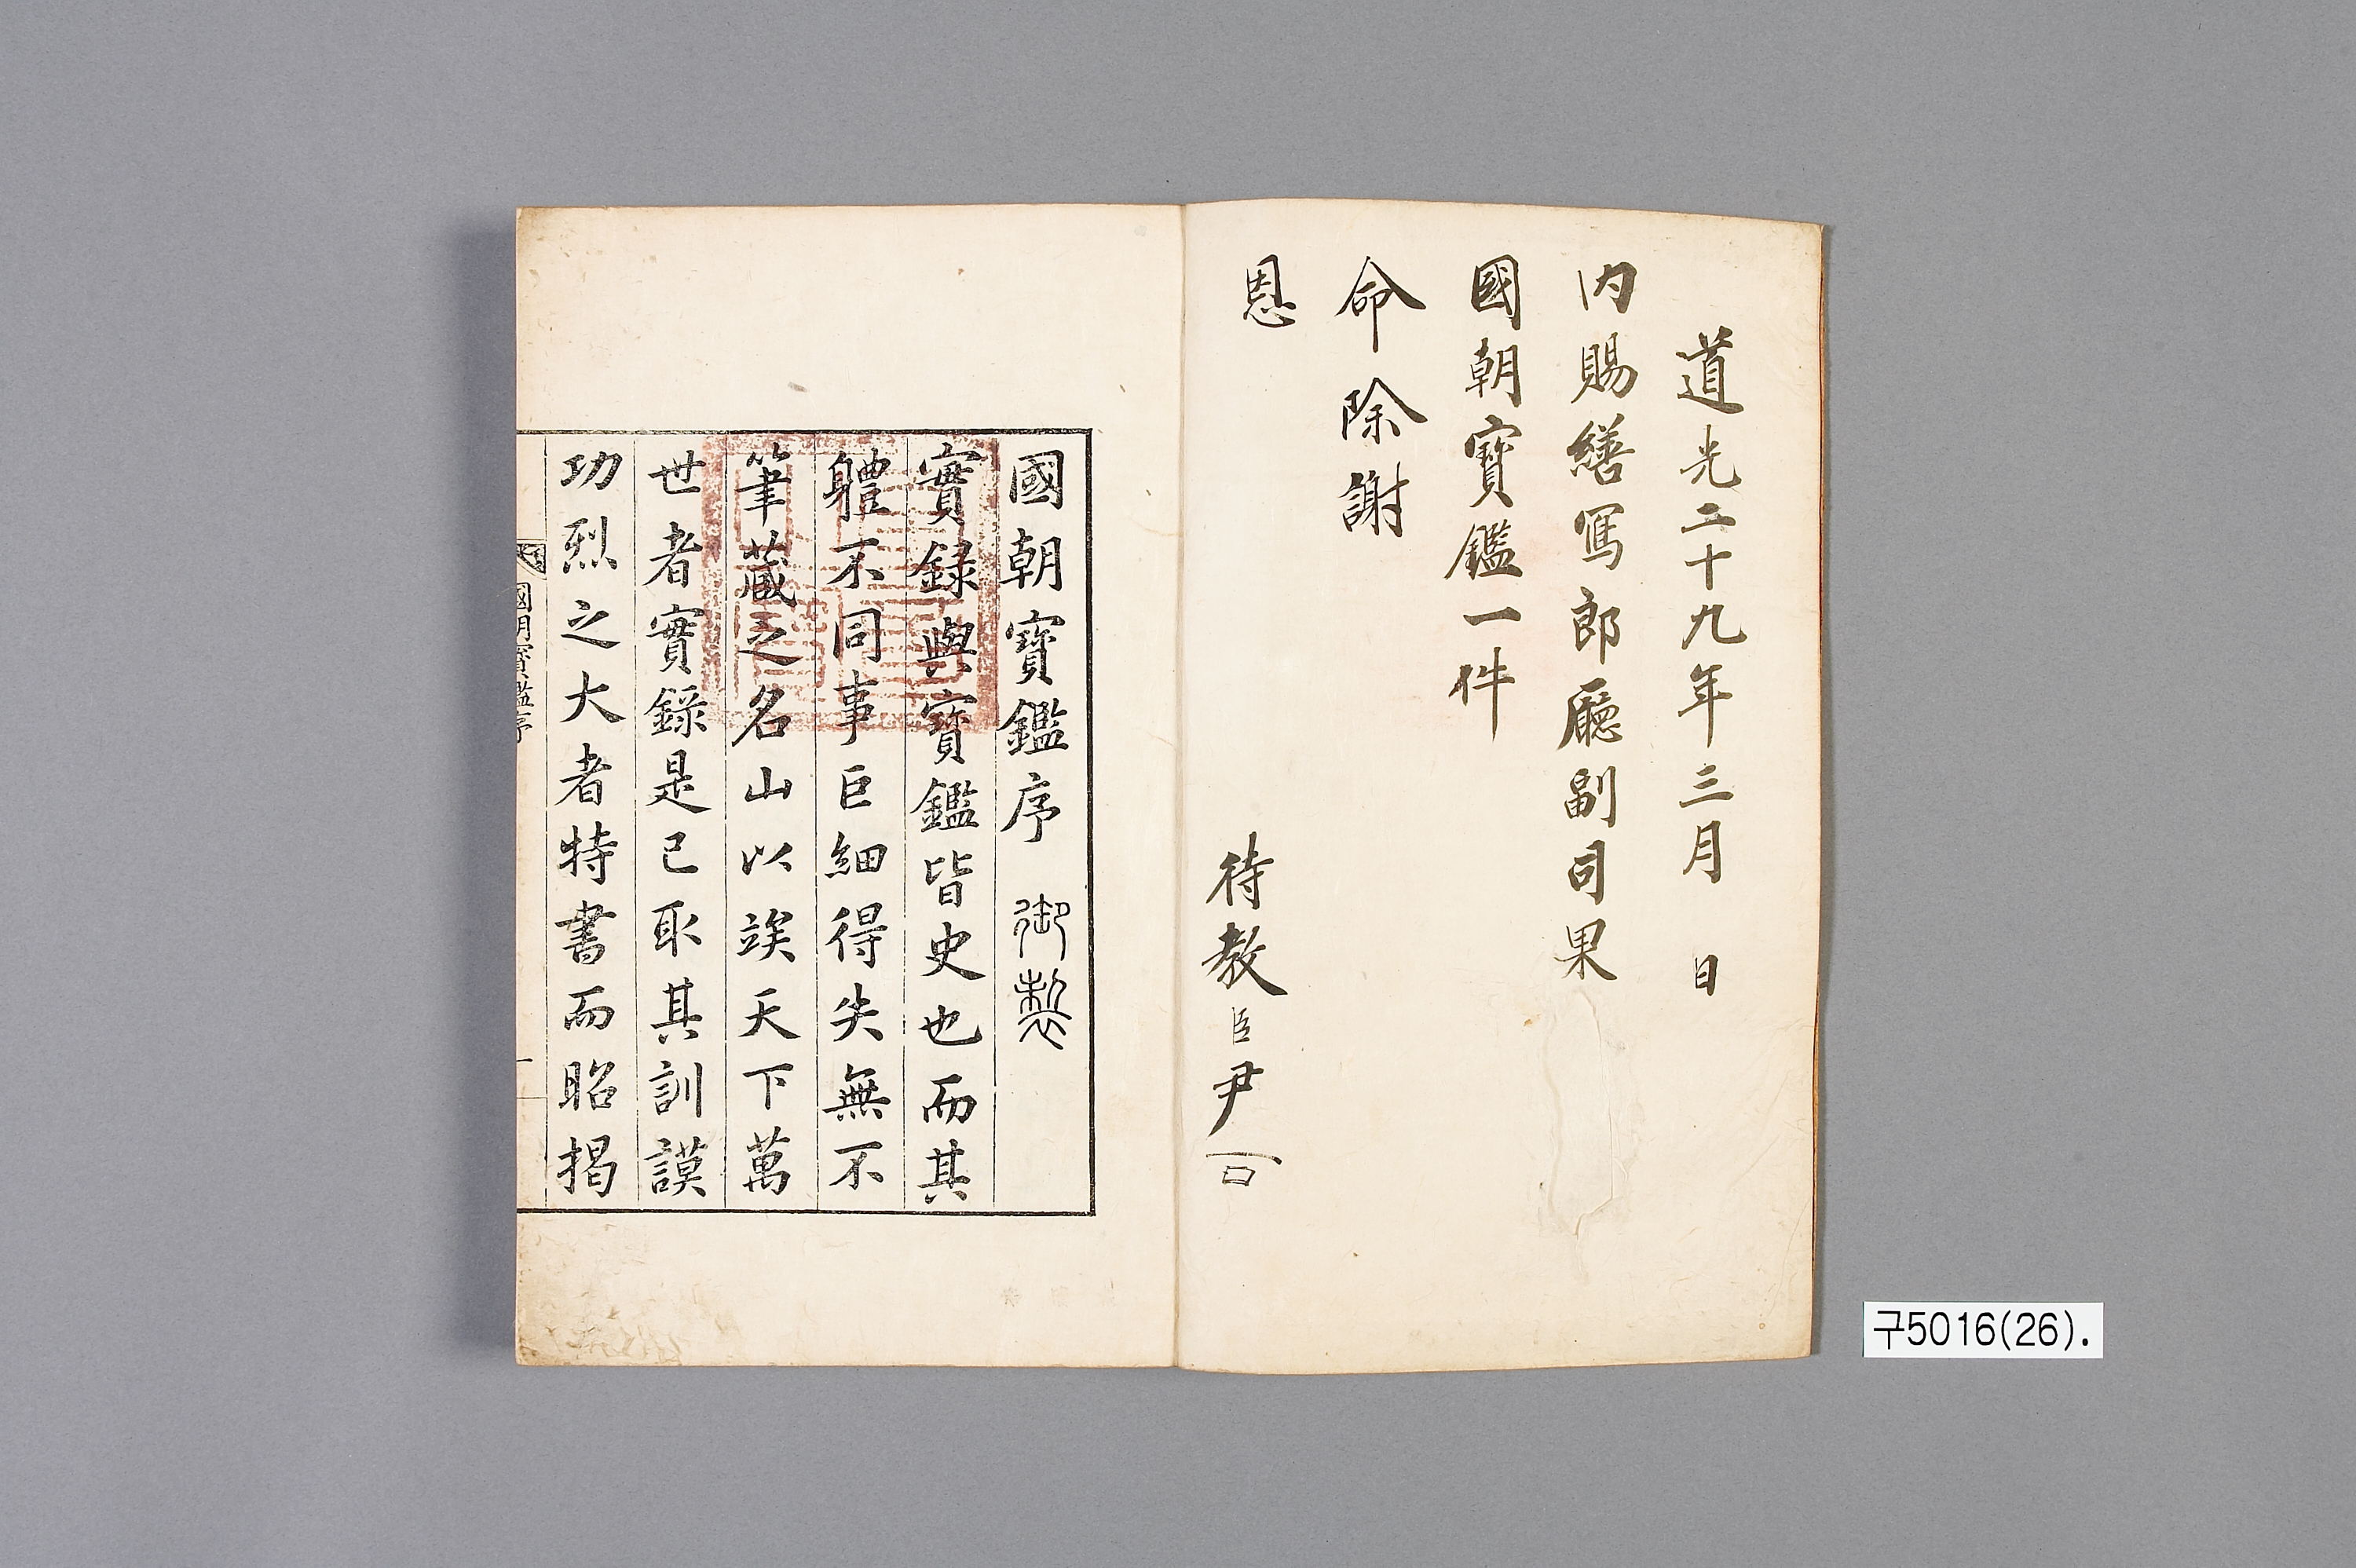 道光二十九年三月 日
内賜繕寫郎廳副司果
國朝寶鑑一件
命除謝
恩
待教臣尹
國朝寶鑑序 御製
實録與寶鑑皆史也而其
軆不同事巨細得失無不
筆藏之名山以竢天下萬
世者實錄是已取其訓謨
功烈之大者特書而昭揭
國朝寶鑑序
一
구5016(26).